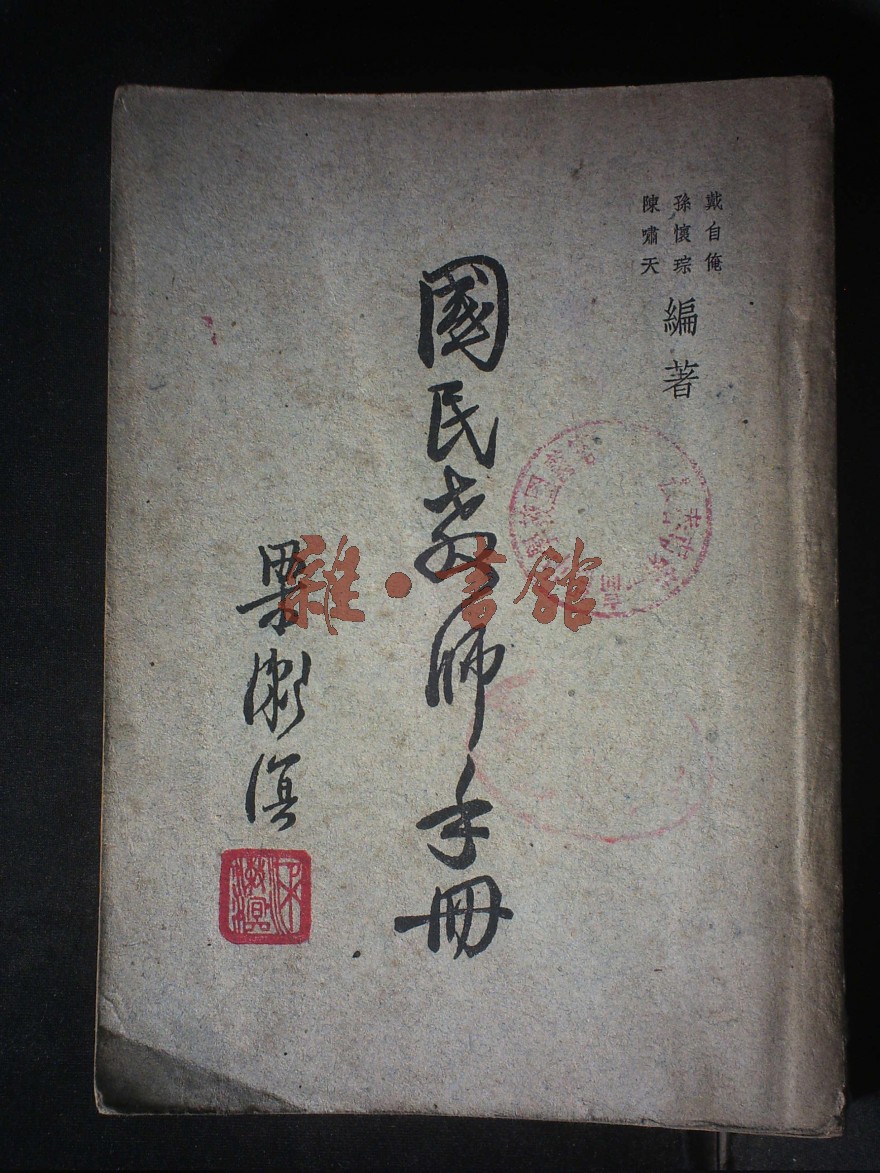 戴自俺
孫懷琮
陳嘯天
編著
國民教師手冊
梁漱溟
雜·書館